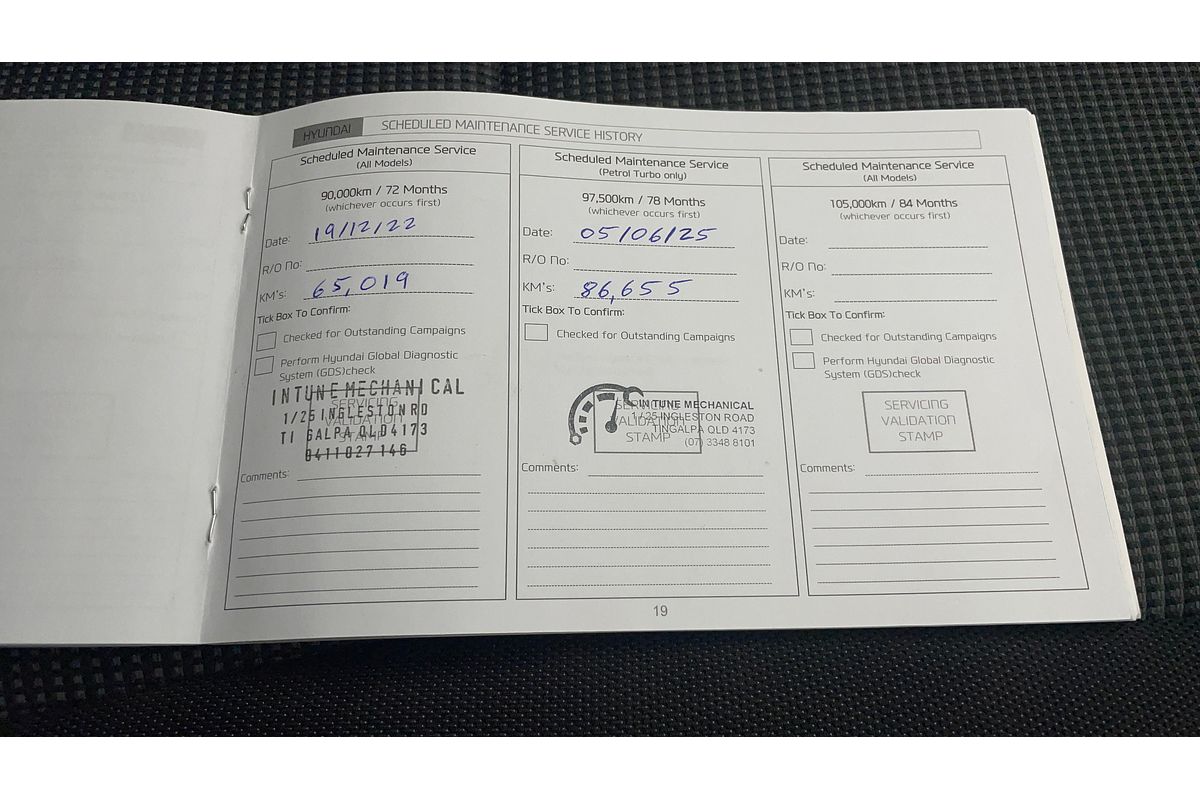 HYUNDAI SCHEDULED MAINTENANCE SERVICE HISTORY
Scheduled Maintenance Service
(All Models)
90,000km / 72 Months
(whichever occurs first)
Date: 19/12/22
R/O No:
KM's: 65,019
Tick Box To Confirm:
Checked for Outstanding Campaigns
Perform Hyundai Global Diagnostic
System (GDS)check
SERVICING
VALIDATION
STAMP
INTUNE MECHANICAL
1/25 INGLESTON RD
TI GALPA QLD 4173
0411027146
Comments:
Scheduled Maintenance Service
(Petrol Turbo only)
97,500km / 78 Months
(whichever occurs first)
Date: 05/06/25
R/O No:
KM's: 86,655
Tick Box To Confirm:
Checked for Outstanding Campaigns
SERVICING
VALIDATION
STAMP
IN TUNE MECHANICAL
1/25 INGLESTON ROAD
TINGALPA QLD 4173
(07) 3348 8101
Comments:
Scheduled Maintenance Service
(All Models)
105,000km / 84 Months
(whichever occurs first)
Date:
R/O No:
KM's:
Tick Box To Confirm:
Checked for Outstanding Campaigns
Perform Hyundai Global Diagnostic
System (GDS)check
SERVICING
VALIDATION
STAMP
Comments:
19